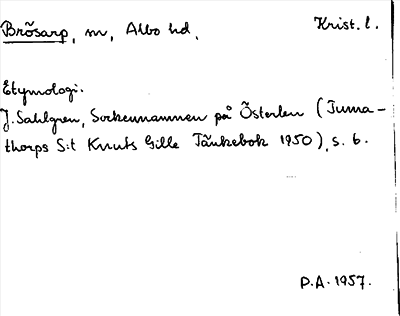 Brösarp, m, Albo hd. Krist. l.
Etymologi.
J. Sahlgren, Sockennamnen på Österlen (Tuma-
thorps S:t Knuts Gille Tänkebok 1950), s. 6.
P.A. 1957.